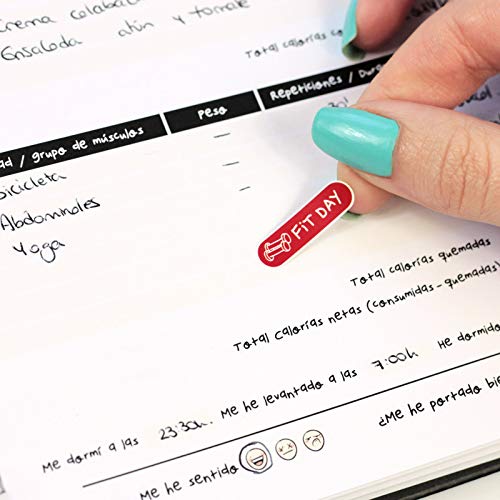 crema calaba
Ensalada atún y tomate
Total calorías co
ad / grupo de músculos Peso Repeticiones / Dura
bicicleta — 30'
Abdominales —
Yoga —
FIT DAY
Total calorías quemadas
Total calorías netas (consumidas - quemadas)
Me dormí a las 23:30h. Me he levantado a las 7:00h He dormido
Me he sentido ¿Me he portado bie